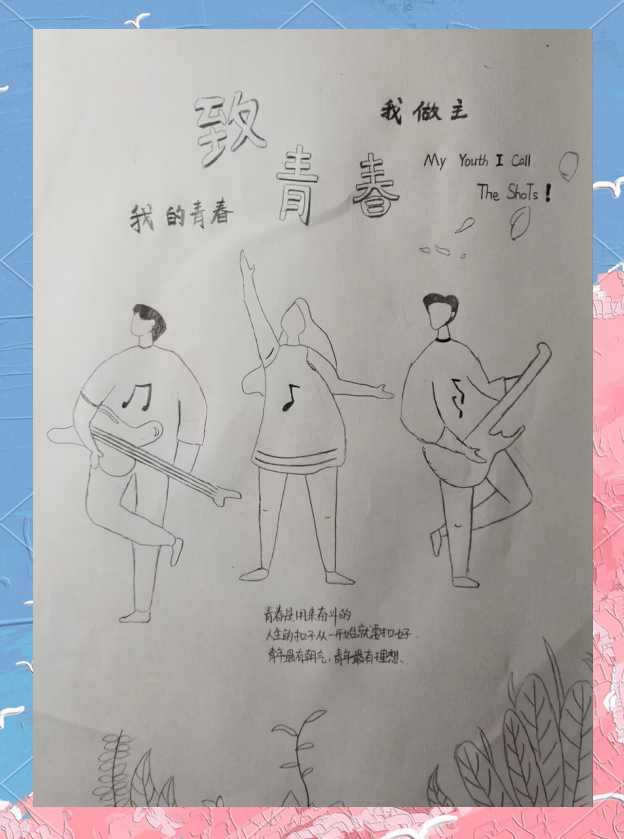 致
青春
我做主
My Youth I Call
The ShoTs!
我的青春
青春是用来奋斗的
人生的扣子从一开始就要扣好.
青年最有朝气,青年最有理想、